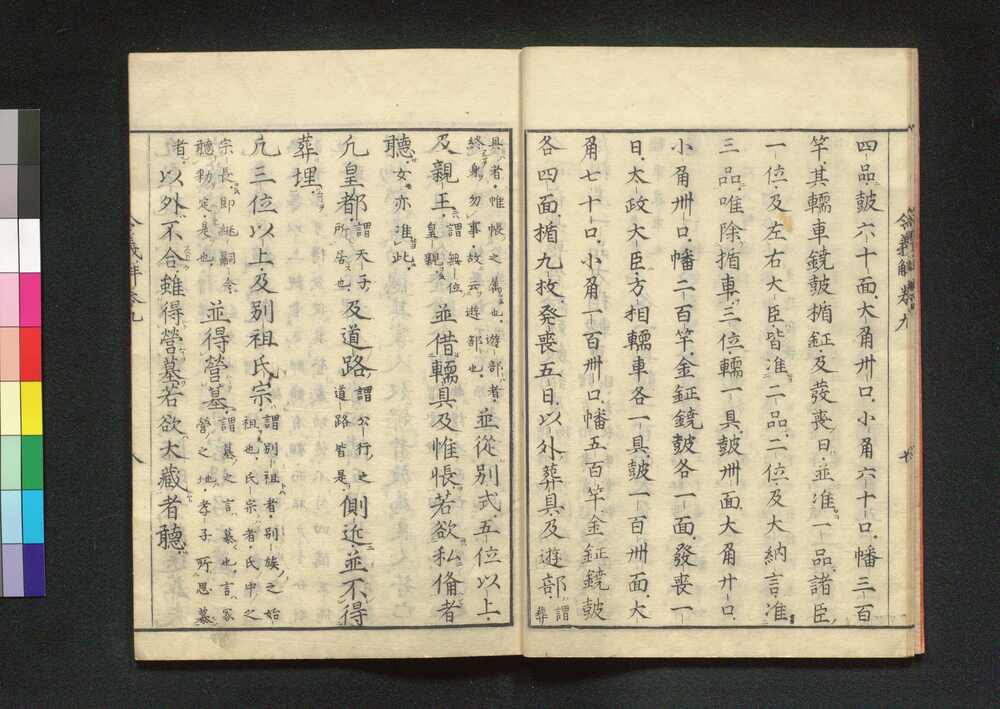 四品皷六十面大角卅口小角六十口幡三百
竿其轜車鐃皷楯鉦及發喪日並准一品諸臣
一位及左右大臣皆准二品二位及大納言准
三品唯除楯車三位轜一具皷卌面大角廿口
小角卌口幡二百竿金鉦鐃皷各一面發喪一
日太政大臣方相轜車各一具皷一百卌面大
角七十口小角一百卌口幡五百竿金鉦鐃皷
各四面楯九枚發喪五日以外葬具及遊部謂
葬
具者帷帳之属也遊部者
終身勿事故云遊部也
並從別式五位以上
及親王謂無位
皇親
並借轜具及帷帳若欲私俻者
聽女亦准此
凢皇都謂天子
所居也
及道路謂公行之
道路皆是
側近並不得
葬埋
凢三位以上及別祖氏宗謂別祖者別族之始
祖也氏宗者氏中之
宗長即継嗣令
聽勅定是也
並得營墓謂墓之言慕也言冢
營之地孝子所思慕
者
以外不合雖得營墓若欲大藏者聽
令義解卷九
七
令義解卷九
八